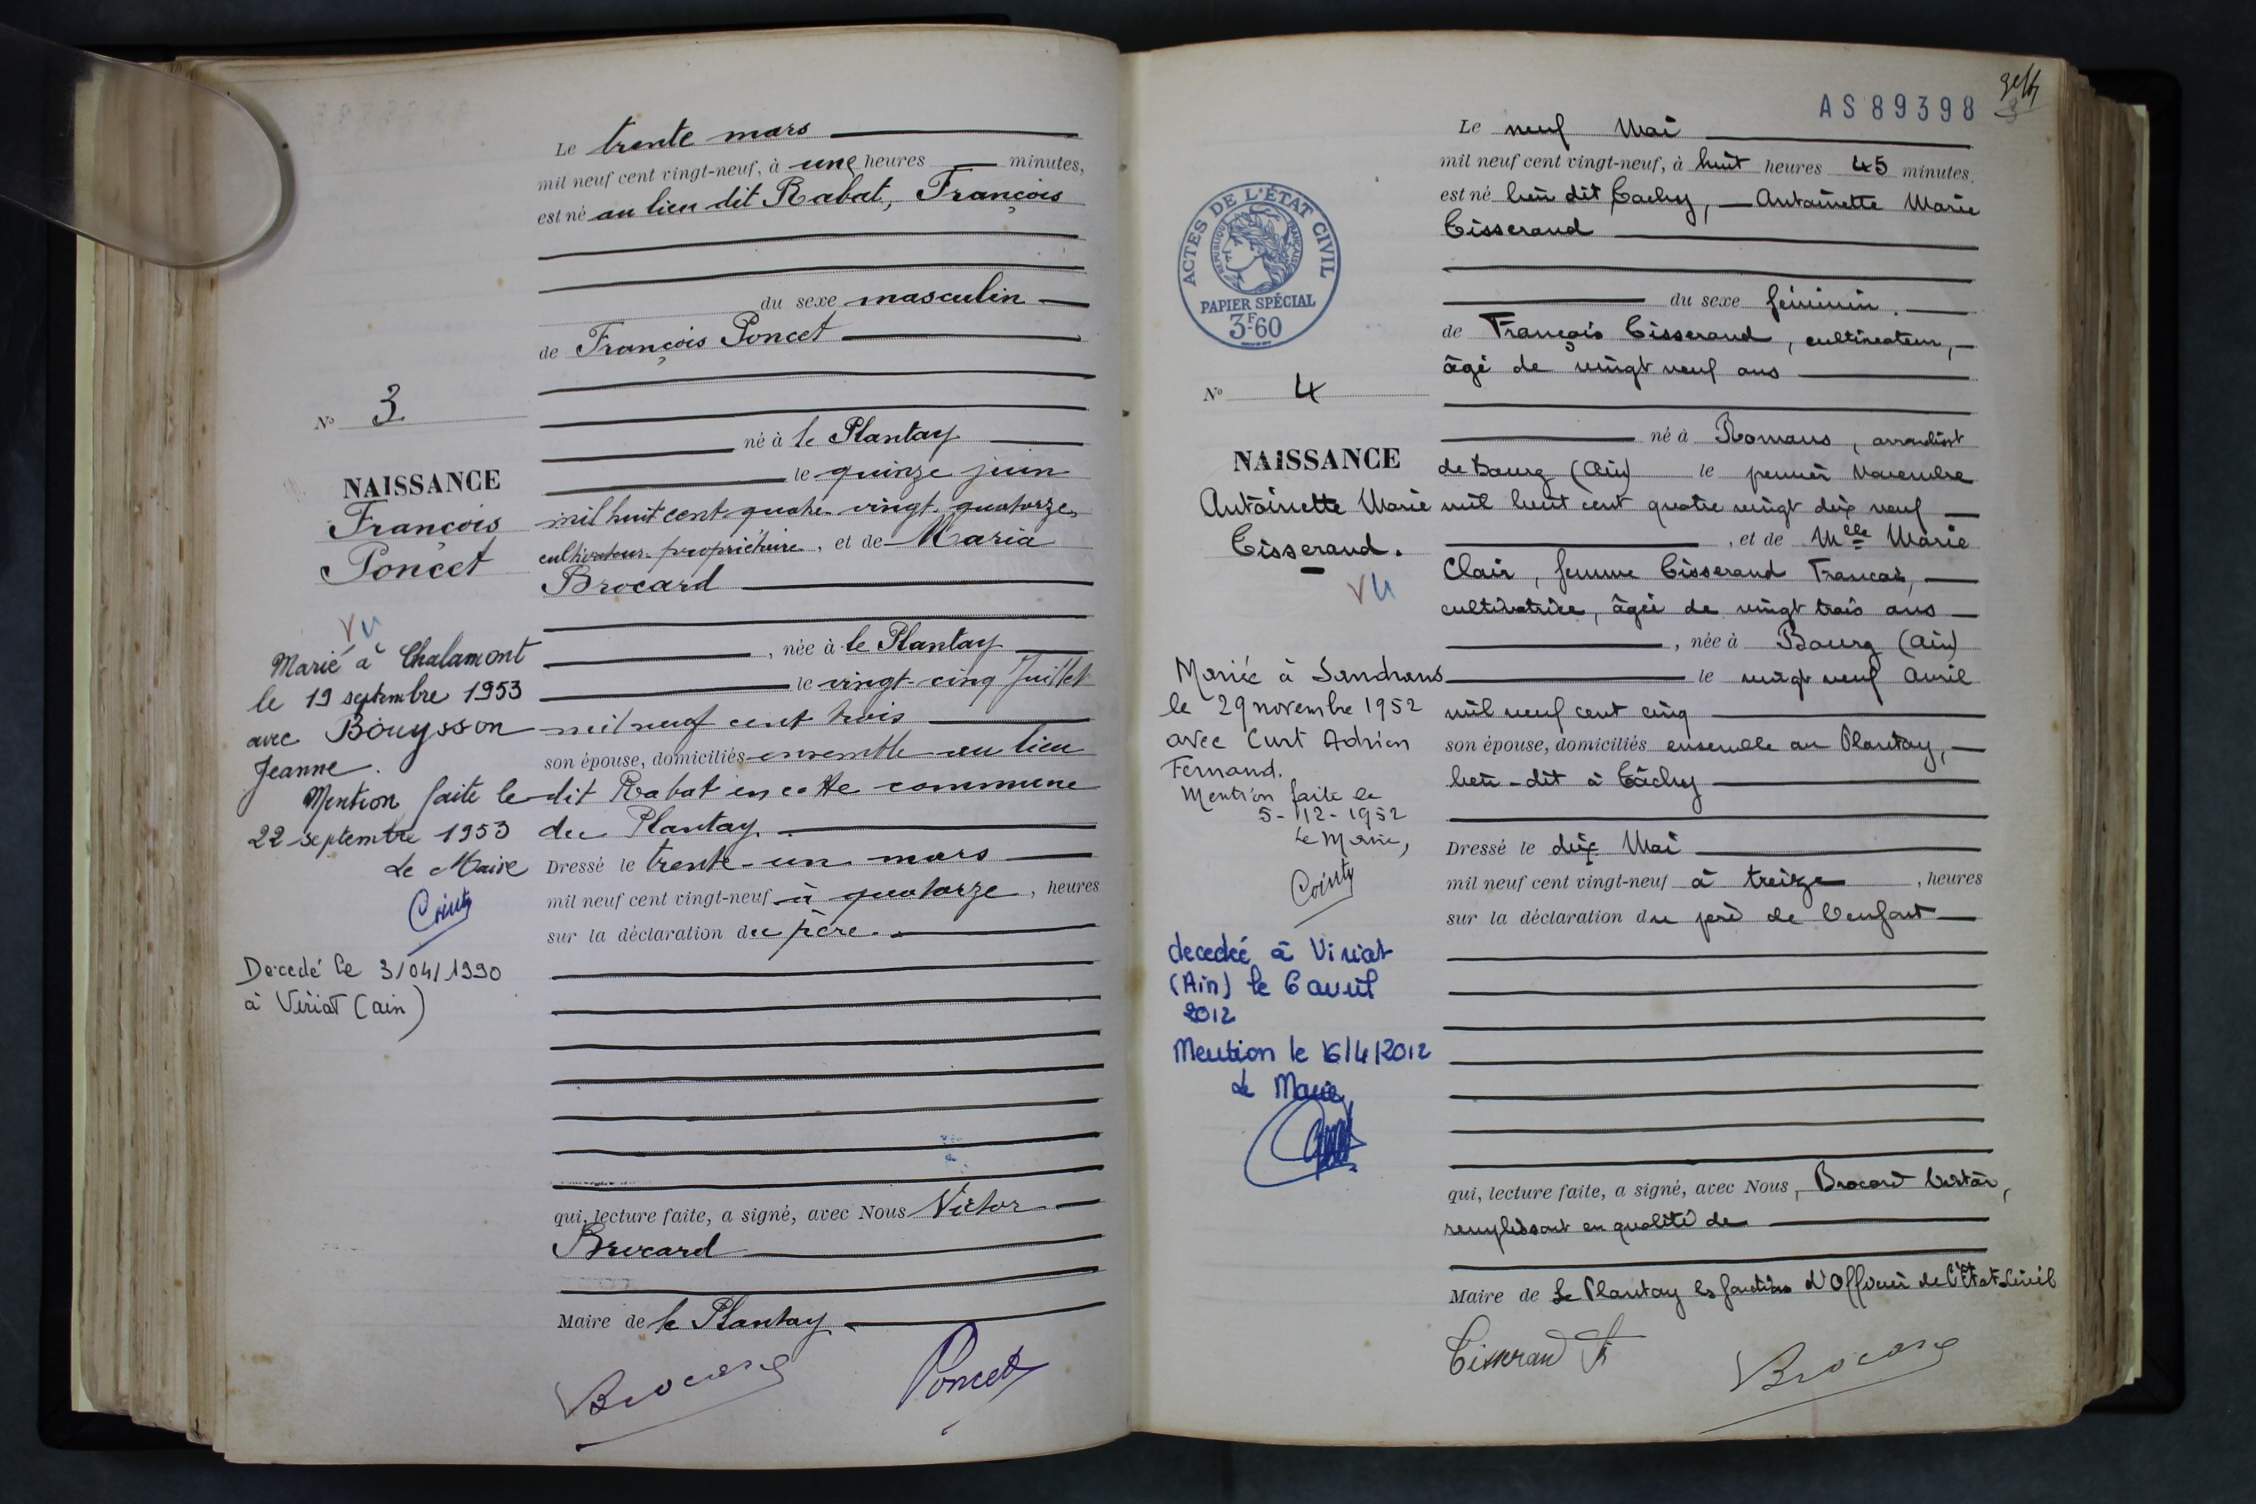 Le trente mars
mil neuf cent vingt-neuf, à une heures minutes,
est né au lieu dit Rabat, François
du sexe masculin
de François Poncet
né à le Plantay
le quinze juin
mil huit cent quatre-vingt-quatorze,
cultivateur-propriétaire, et de Maria
Brocard
, née à le Plantay
le vingt-cinq Juillet
mil neuf cent trois
son épouse, domiciliés ensemble au lieu
dit Rabat en cette commune
du Plantay.
Dressé le trente-un mars
mil neuf cent vingt-neuf à quatorze, heures
sur la déclaration du père.
qui, lecture faite, a signé, avec Nous Victor
Brocard
Maire de le Plantay
Brocard
Poncet
No 3
NAISSANCE
François
Poncet
VU
Marié à Chalamont
le 19 septembre 1953
avec Bouysson
Jeanne.
Mention faite le
22 septembre 1953
Le Maire
Cointy
Decedé le 3/04/1990
à Viriat (ain)
AS89398
Le neuf Mai
mil neuf cent vingt-neuf, à huit heures 45 minutes,
est né lieu dit Cachy, Antoinette Marie
Tisserand
du sexe féminin.
de François Tisserand, cultivateur,
âgé de vingt neuf ans
né à Romans, arrondist
de Bourg (Ain) le premier Novembre
mil huit cent quatre vingt dix neuf
, et de Mlle Marie
Clair, femme Tisserand Francois,
cultivatrice, âgée de vingt trois ans
, née à Bourg (Ain)
le vingt neuf Avril
mil neuf cent cinq
son épouse, domiciliés ensemble au Plantay,
lieu-dit à Câchy
Dressé le dix Mai
mil neuf cent vingt-neuf à treize, heures
sur la déclaration du père de l'enfant
qui, lecture faite, a signé, avec Nous, Brocard
remplissant en qualité de
Maire de Le Plantay les fonctions d'Officier de l'Etat Civil
Tisserand
Brocard
ACTES DE L'ÉTAT CIVIL
RÉPUBLIQUE FRANÇAISE
PAPIER SPÉCIAL
3F60
No 4
NAISSANCE
Antoinette Marie
Tisserand.
VU
Mariée à Sandrans
le 29 novembre 1952
avec Curt Adrien
Fernand.
Mention faite le
5-12-1952
Le Maire,
Cointy
decedée à Viriat
(Ain) le 6 avril
2012
Mention le 16/4/2012
Le Maire